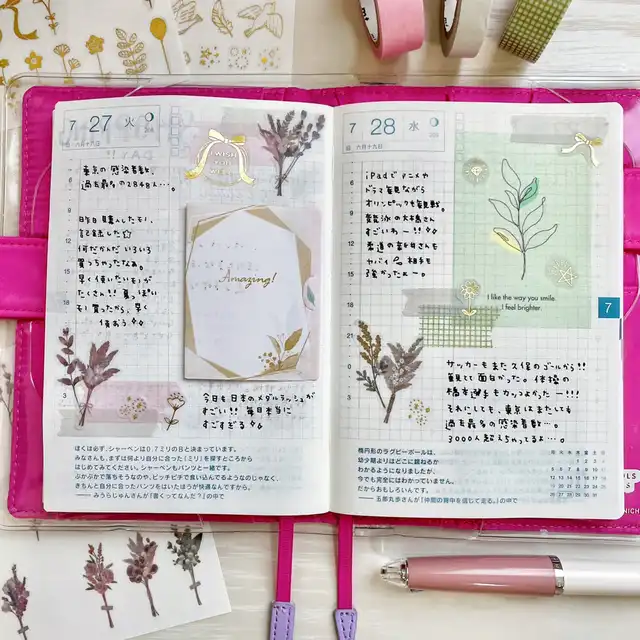 7 27 火
東京の感染者数、
過去最多の2848人…。
昨日購入したモノ、
記録した☆
何だかんだいろいろ
買っちゃったなぁ。
早く使いたいモノが
たくさん!!
買ったから、早く
使おう
WISH
YOU
WELL
Amazing!
今日も日本のメダルラッシュが
すごい!! 毎日本当に
すごすぎる
ぼくは必ず、シャーペンは0.7ミリのBと決まっています。
みなさんも、まずは何より自分に合った「ミリ」を探すところから
はじめてみてください。シャーペンもパンツと一緒です。
ぶかぶかで落ちそうなのや、ピッチピチで食い込んでるようなのじゃなく、
きちんと自分に合ったパンツをはいたほうが快適なんですから。
——みうらじゅんさんが『書くってなんだ?』の中で
7 28 水
六月十九日
iPadでアニメや
ドラマ毎見ながら
オリンピックも観戦。
競泳の大橋さん
すごいわー!!
柔道の新井さんも
ヤバイ 相手も
強かったぁー。
I like the way you smile.
I feel brighter.
7
サッカーもまた久保のゴールから!!
観てて面白かった。体操の
橋本選手もカッコよかったー!!!
それにしても、東京はまたしても
過去最多の感染者数…。
3000人超えちゃってるよ…。
楕円形のラグビーボールは、
幼少期よりはどこに跳ねるか
わかるようになりましたが、
今でも完全にはわかっていません。
だからおもしろいんです。
——五郎丸歩さんが『仲間の背中を信じて走る。』の中で